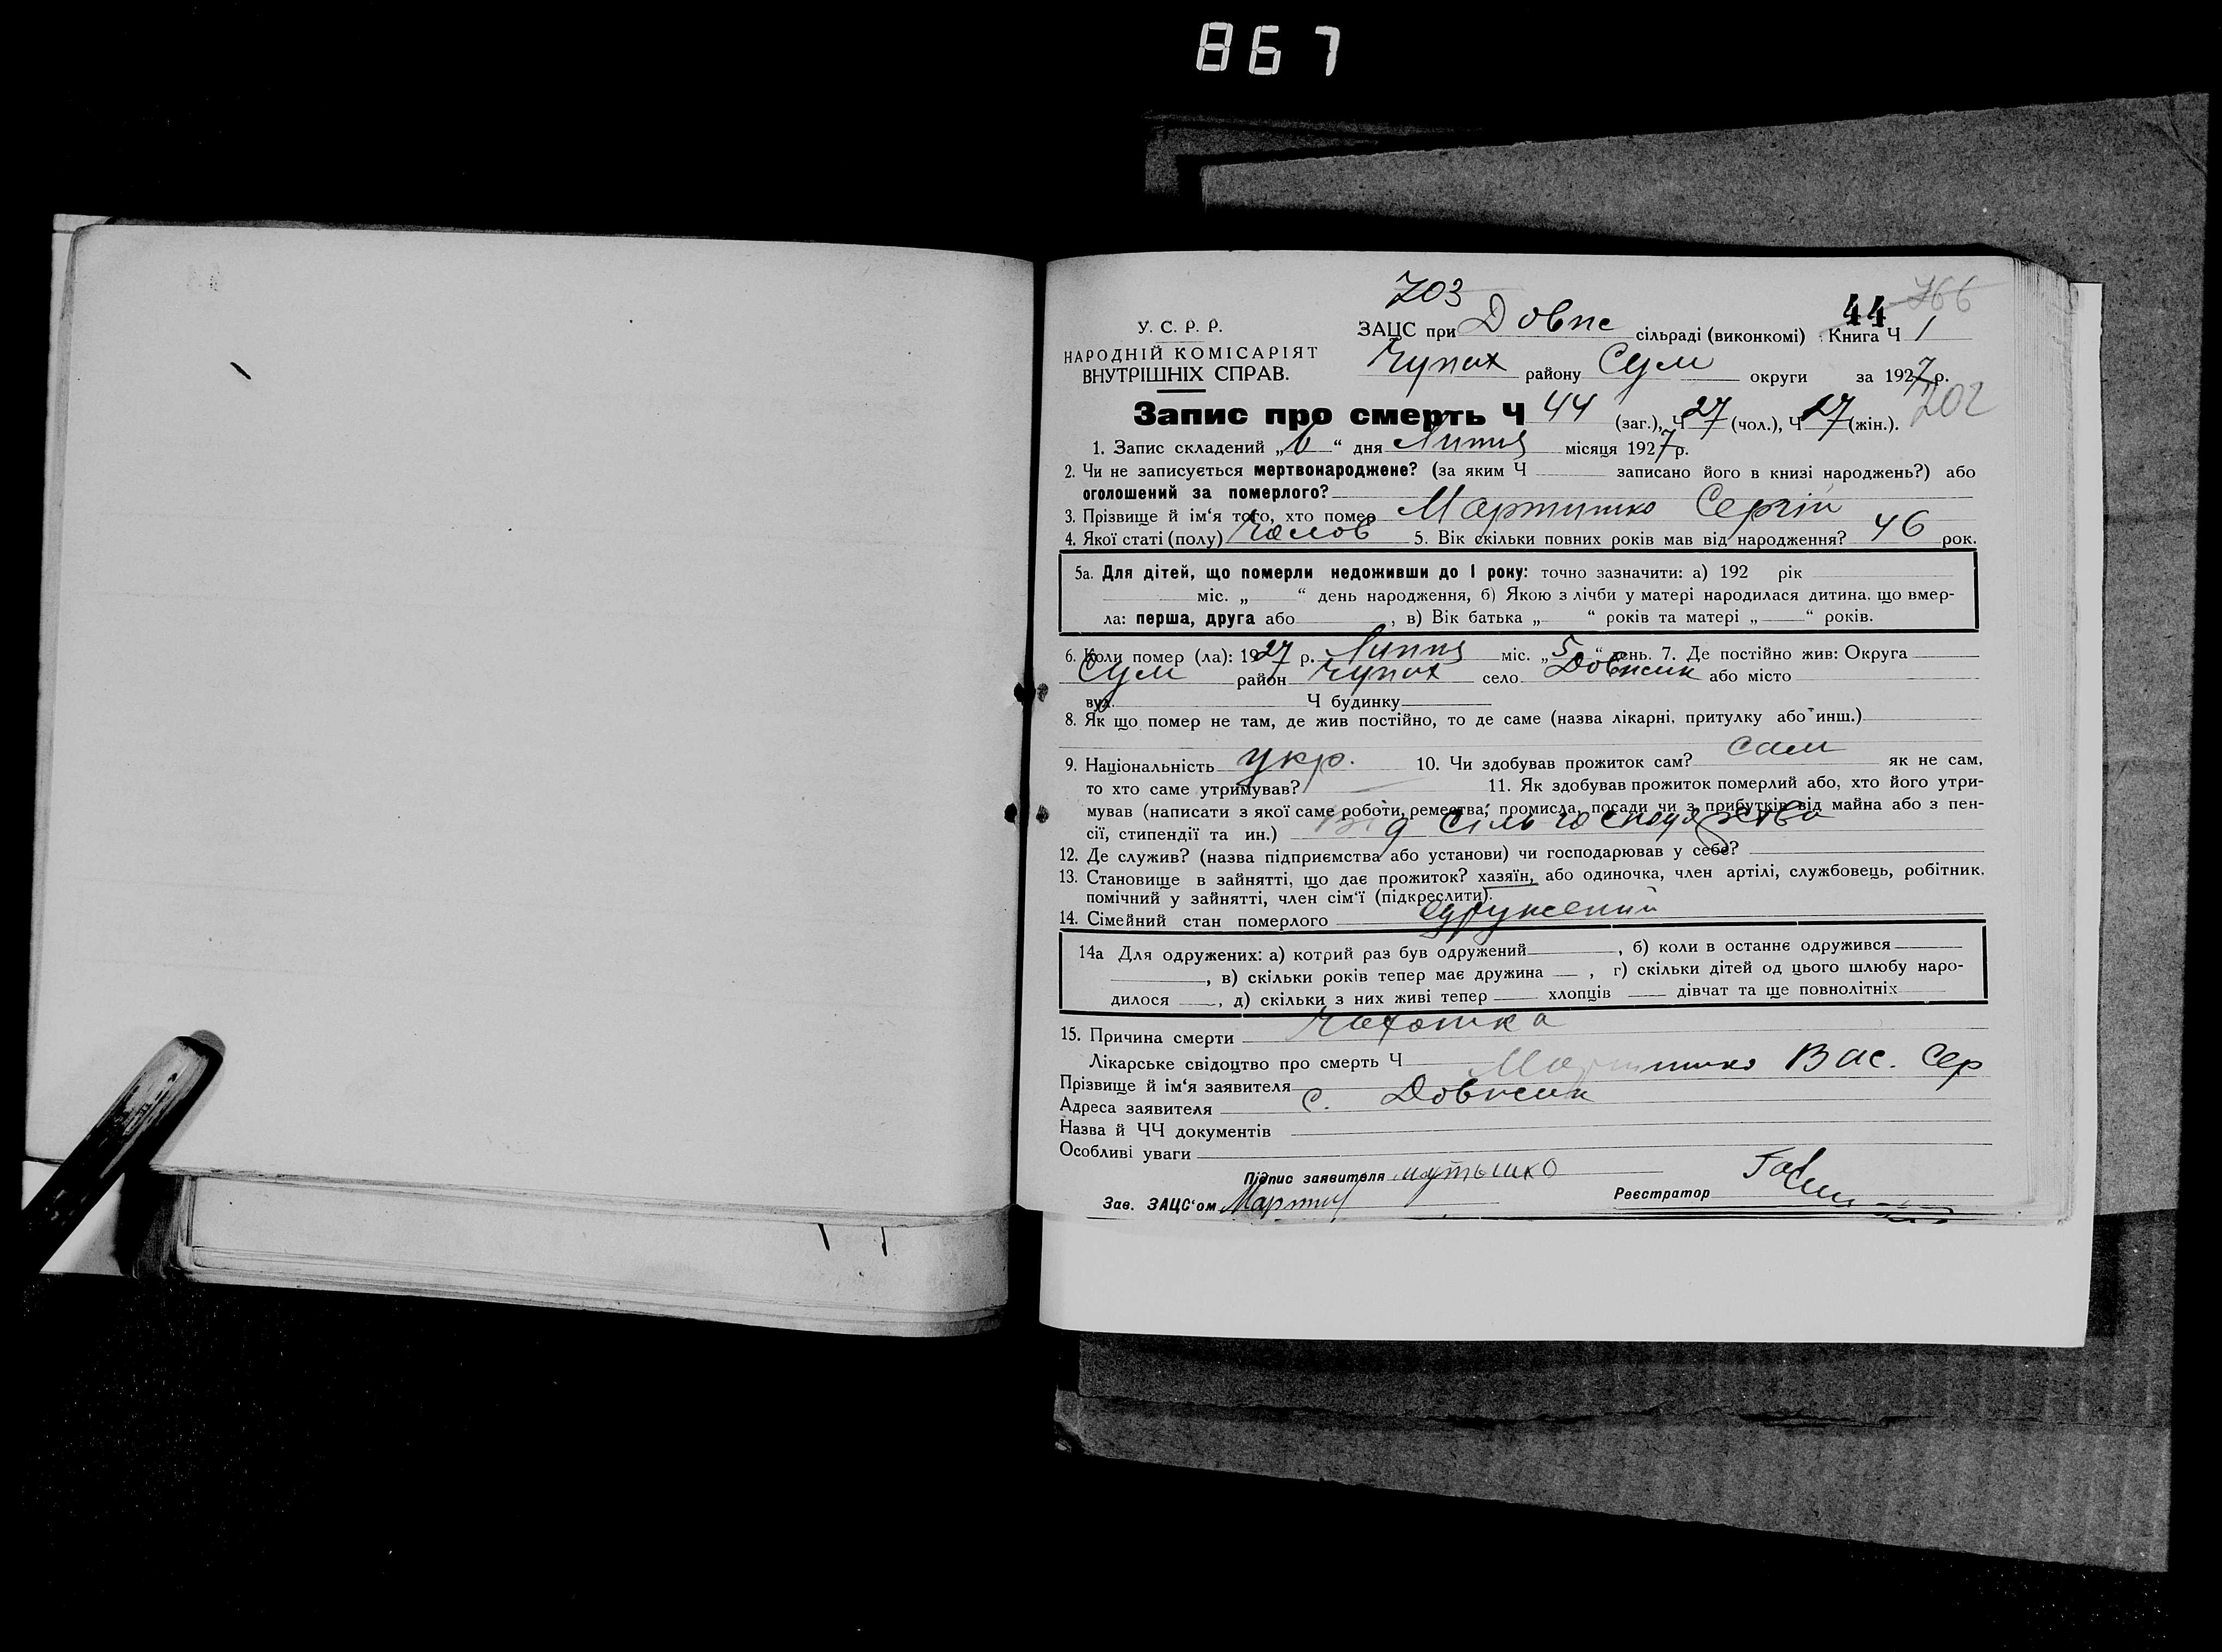 867
703
44 766
У. С. Р. Р.
ЗАЦС при Довпс сільраді (виконкомі) Книга Ч 1
НАРОДНІЙ КОМІСАРІЯТ
ВНУТРІШНІХ СПРАВ.
Чупах району Сум округи за 1927 р.
202
Запис про смерть Ч 44 (заг.), Ч 27 (чол.), Ч 27 (жін.).
1. Запис складений „6“ дня Липня місяця 1927 р.
2. Чи не записується мертвонароджене? (за яким Ч записано його в книзі народжень?) або
оголошений за померлого?
3. Прізвище й ім‘я того, хто помер Мартишко Сергій
4. Якої статі (полу) Чолов 5. Вік скільки повних років мав від народження? 46 рок.
5а. Для дітей, що померли недоживши до І року: точно зазначити: а) 192 рік
міс. „ “ день народження, б) Якою з лічби у матері народилася дитина. що вмер-
ла: перша, друга або , в) Вік батька „ “ років та матері „ “ років.
6. Коли помер (ла): 1927 р. Липня міс. „5“ день. 7. Де постійно жив: Округа
Сум район Чупах село Довжик або місто
вул. Ч будинку
8. Як що помер не там, де жив постійно, то де саме (назва лікарні, притулку або инш.)
9. Національність укр. 10. Чи здобував прожиток сам? сам як не сам,
то хто саме утримував? 11. Як здобував прожиток померлий або, хто його утри-
мував (написати з якої саме роботи, ремества, промисла, посади чи з прибутків від майна або з пен-
сії, стипендії та ин.) Від сільгосподарства
12. Де служив? (назва підприємства або установи) чи господарював у себе?
13. Становище в зайнятті, що дає прожиток? хазяїн, або одиночка, член артілі, службовець, робітник,
помічний у зайнятті, член сім‘ї (підкреслити).
14. Сімейний стан померлого одружений
14а Для одружених: а) котрий раз був одружений , б) коли в останнє одружився
, в) скільки років тепер має дружина , г) скільки дітей од цього шлюбу наро-
дилося , д) скільки з них живі тепер хлопців дівчат та ще повнолітніх
15. Причина смерти Чахотка
Лікарське свідоцтво про смерть Ч
Прізвище й ім‘я заявителя Мартишко Вас. Сер
Адреса заявителя с. Довжик
Назва й ЧЧ документів
Особливі уваги
Підпис заявителя
Зав. ЗАЦС‘ом Реєстратор